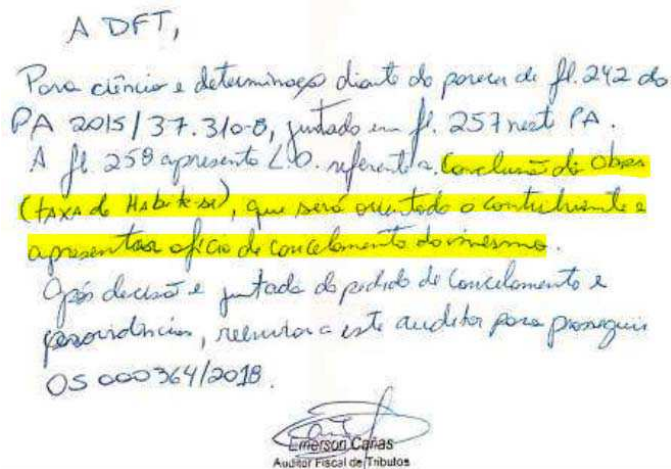 A DFT,
Para ciência e determinação diante do parecer de fl. 242 do
PA 2015/37.310-8, juntado em fl. 257 neste PA.
A fl. 258 apresento L.O. referente a Conclusão de Obra
(taxa de Habite-se), que será orientado o contribuinte a
apresentar ofício de cancelamento do mesmo.
Após decisão e juntada do pedido de cancelamento e
providências, reenviar a este auditor para prosseguir
OS 000364/2018.
Emerson Cañas
Auditor Fiscal de Tributos